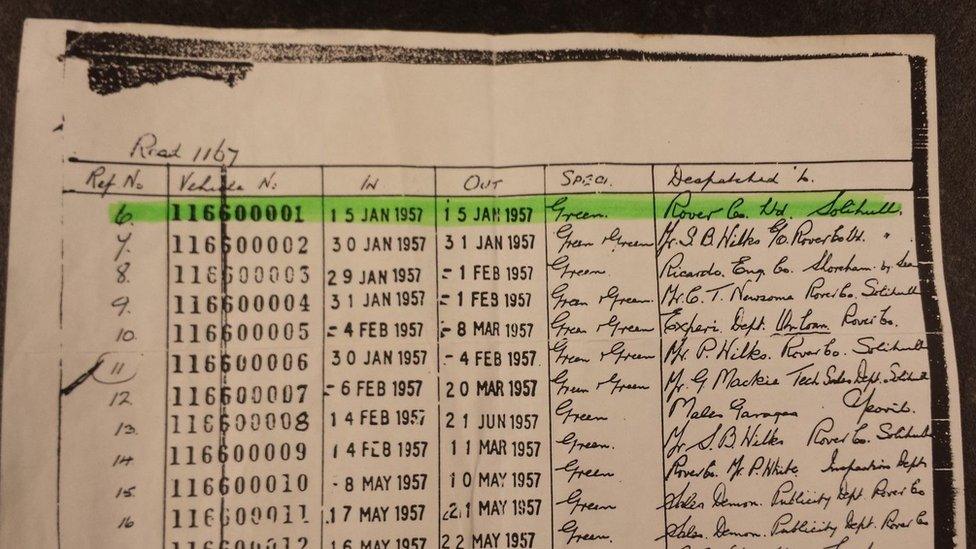 Road 1167
Ref No. Vehicle No. IN OUT SPECI. Despatched to.
6. 116600001 15 JAN 1957 15 JAN 1957 Green. Rover Co. Ltd. Solihull.
7. 116600002 30 JAN 1957 31 JAN 1957 Green + Green Mr. S. B. Wilks Rover Co Ltd. "
8. 116600003 29 JAN 1957 - 1 FEB 1957 Green. Ricardo. Eng. Co. Shoreham. by Sea
9. 116600004 31 JAN 1957 - 1 FEB 1957 Green + Green. Mr. C. T. Newsome Rover Co. Solihull
10. 116600005 - 4 FEB 1957 - 8 MAR 1957 Green + Green Experi. Dept. On Loan. Rover Co.
11 116600006 30 JAN 1957 - 4 FEB 1957 Green + Green Mr. P. Wilks. Rover Co. Solihull
12. 116600007 - 6 FEB 1957 20 MAR 1957 Green + Green Mr. G Mackie Tech Sales Dept. Solihull
13. 116600008 14 FEB 1957 21 JUN 1957 Green. Males Garages Yeovil.
14. 116600009 14 FEB 1957 11 MAR 1957 Green. Mr S. B Wilks Rover Co. Solihull
15. 116600010 - 8 MAY 1957 10 MAY 1957 Green. Rover Co. Mr. P. White Inspection Dept
16 116600011 17 MAY 1957 21 MAY 1957 Green. Sales Demon. Publicity Dept. Rover Co
116600012 16 MAY 1957 22 MAY 1957 Green. Sales. Demon. Publicity Dept. Rover Co